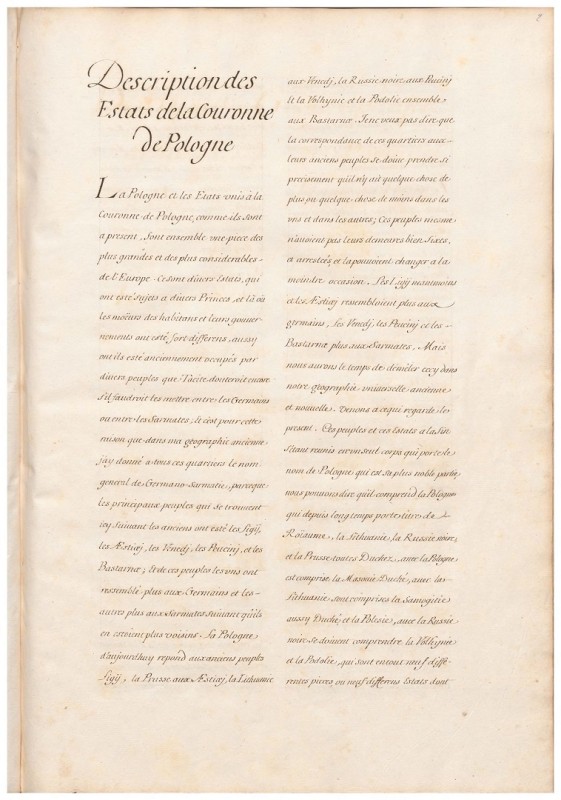 2
Description des
Estats de la Couronne
de Pologne
La Pologne et les Estats vnis à la
Couronne de Pologne, comme ils sont
a present, sont ensemble vne piece des
plus grandes et des plus considerables
de l'Europe. Ce sont diuers Estats, qui
ont esté sujets a diuers Princes, et là où
les moeurs des habitans et leurs gouuer-
nements ont esté fort differens, aussy
ont ils esté anciennement occupés par
diuers peuples que Tacite douteroit encore
s'il faudroit les mettre entre les Germains
ou entre les Sarmates; Et c'est pour cette
raison que dans ma géographie ancienne
j'ay donné a tous ces quartiers le nom
general de Germano-Sarmatie, parceque
les principaux peuples qui se trouuent
icy suiuant les anciens ont esté les Ligij,
les Æstiæj, les Venedj, les Peucinj, et les
Bastarnæ; Et de ces peuples les vns ont
ressemblé plus aux Germains et les
autres plus aux Sarmates suiuant qu'ils
en estoient plus voisins. La Pologne
d'aujourd'huy repond aux anciens peuples
Ligij, la Prusse aux Æstiæj, la Lithuanie
aux Venedj, la Russie noire aux Peucinj
Et la Volhynie et la Podolie ensemble
aux Bastarnæ. Je ne veux pas dire que
la correspondance de ces quartiers auec
leurs anciens peuples se doiue prendre si
precisement qu'il n'y ait quelque chose de
plus ou quelque chose de moins dans les
vns et dans les autres; Ces peuples mesme
n'auoient pas leurs demeures bien fixes,
a arrestées et la pouuoient changer a la
moindre occasion. Les Ligij neantmoins
et les Æstiæj ressembloient plus aux
germains, les Venedj, les Peucinj et les
Bastarnæ plus aux Sarmates. Mais
nous aurons le temps de démêler cecy dans
notre géographie vniuerselle ancienne
et nouuelle. Venons a ce qui regarde le
present. Ces peuples et ces Estats a la fin
s'étant reunis en vn seul corps qui porte le
nom de Pologne qui est sa plus noble partie,
nous pouuons dire qu'il comprend la Pologne
qui depuis longtemps porte titre de
Roïaume, la Lithuanie, la Russie noire,
et la Prusse toutes Duchez, auec la Pologne
est comprise la Masouie Duché, auec la
Lithuanie sont comprises la Samogitie
aussy Duché et la Polesie, auec la Russie
noire se doiuent comprendre la Volhynie
et la Podolie, qui sont en tout neuf diffe-
rentes pieces, ou neuf differens Estats dont